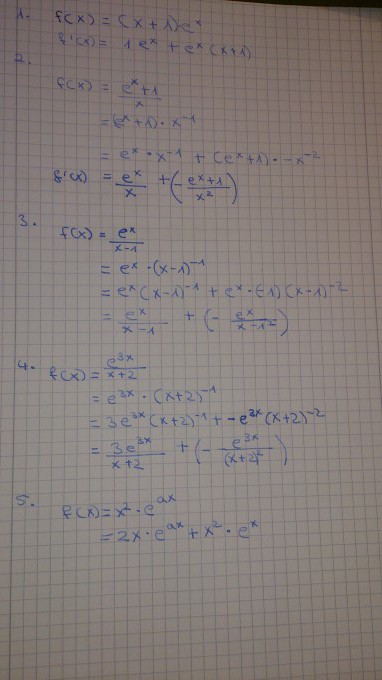 1. f(x) = (x+1)e^x
f'(x) = 1·e^x + e^x (x+1)
2.
f(x) = (e^x+1)/x
= (e^x+1) · x^-1
= e^x · x^-1 + (e^x+1) · -x^-2
f'(x) = e^x/x + (- (e^x+1)/x^2)
3. f(x) = e^x/(x-1)
= e^x · (x-1)^-1
= e^x (x-1)^-1 + e^x · (-1) (x-1)^-2
= e^x/(x-1) + (- e^x/(x-1^2))
4. f(x) = e^3x/(x+2)
= e^3x · (x+2)^-1
= 3e^3x (x+2)^-1 + -e^3x (x+2)^-2
= 3e^3x/(x+2) + (- e^3x/(x+2)^2)
5. f(x) = x^2 · e^ax
= 2x · e^ax + x^2 · e^x